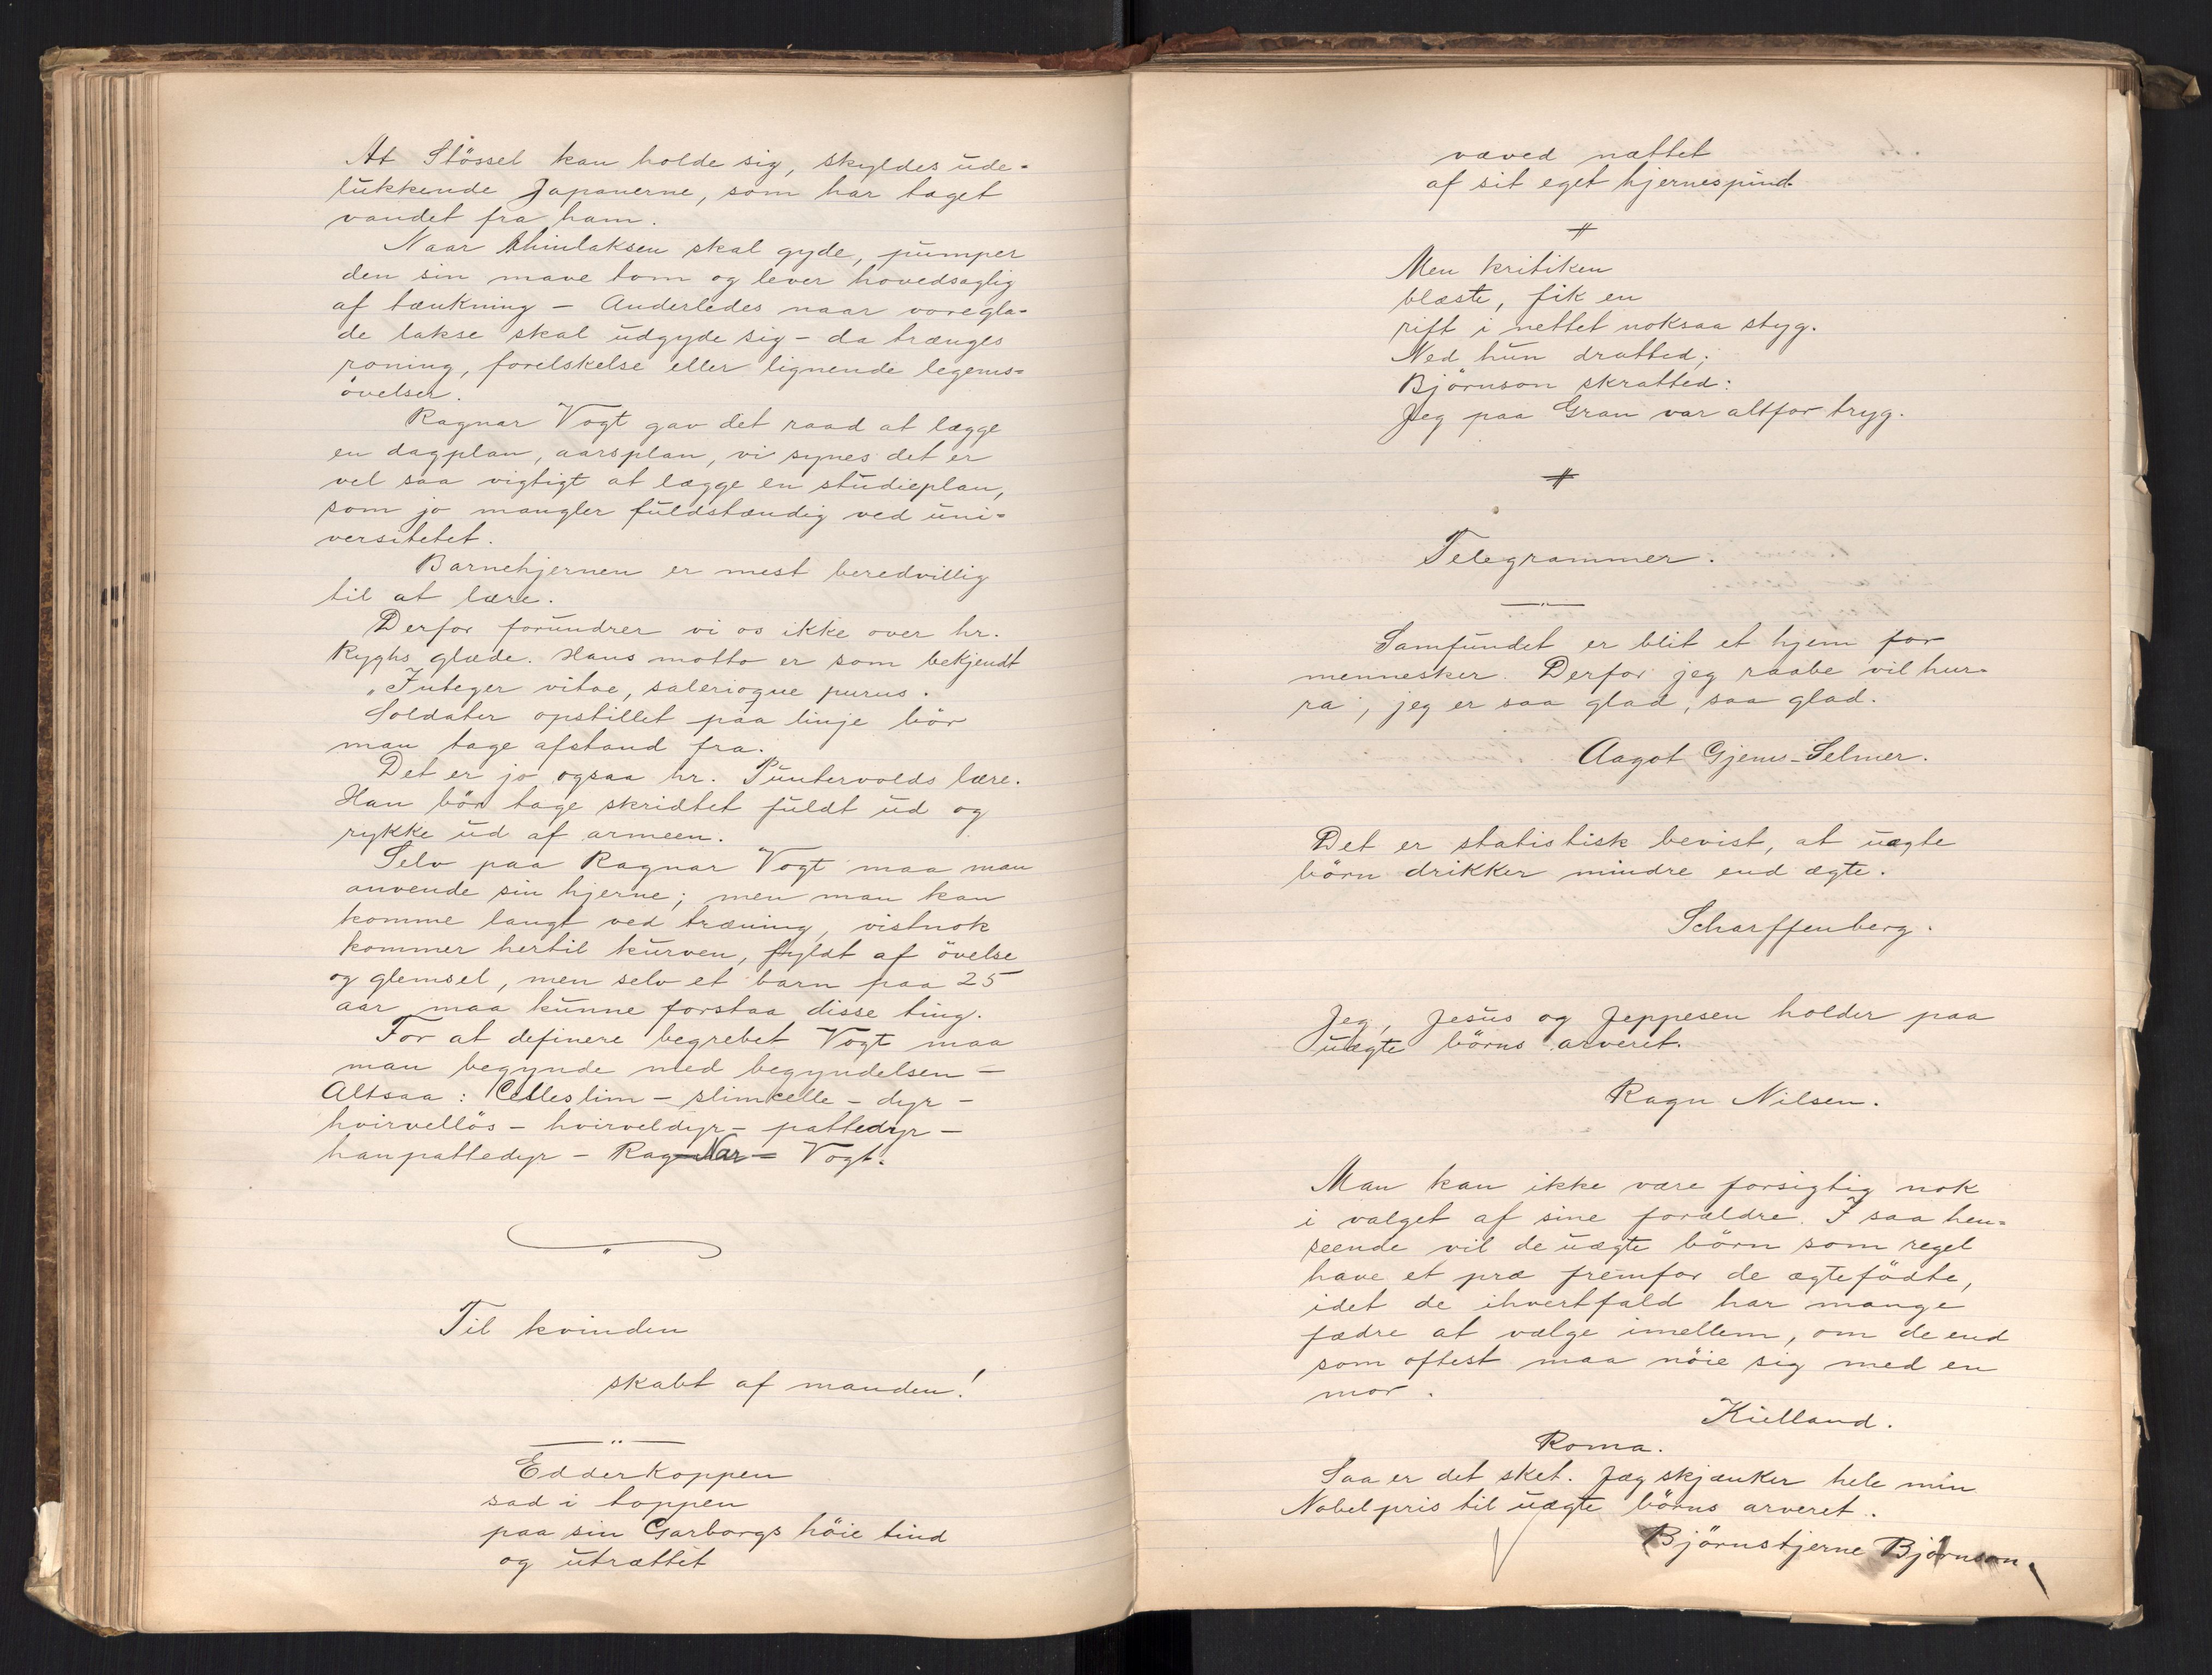 At Stössel kan holde sig, skyldes ude-
lukkende Japanerne, som har taget
vandet fra ham.
Naar Rhinlaksen skal gyde, pumper
den sin mave tom og lever hovedsaglig
af tænkning - Anderledes naar vore gla-
de lakse skal udgyde sig - da trænges
roning, forelskelse eller lignende legems-
övelser.
Ragnar Vogt gav det raad at lægge
en dagplan, aarsplan, vi synes det er
vel saa vigtigt at lægge en studieplan,
som jo mangler fuldstændig ved uni-
versitetet.
Barnehjernen er mest beredvillig
til at lære.
Derfor forundrer vi os ikke over hr.
Ryghs glæde. Hans motto er som bekjendt
"Integer vitae, saleriqque purus.
Soldater opstillet paa linje bör
man tage afstand fra.
Det er jo ogsaa hr. Puntervolds lære.
Han bör tage skridtet fuldt ud og
rykke ud af armeen.
Selv paa Ragnar Vogt maa man
anvende sin hjerne; men man kan
komme langt ved træning, vistnok
kommer hertil kurven, fyldt af övelse
og glemsel, men selv et barn paa 25
aar maa kunne forstaa disse ting.
For at definere begrebet Vogt maa
man begynde med begyndelsen -
Altsaa: Celleslim - slimcelle - dyr -
hvirvellös - hvirveldyr - pattedyr -
hanpattedyr - Rag-Nar - Vogt.
Til kvinden
skabt af manden!
Edderkoppen
sad i toppen
paa sin Garborgs höie tind
og utrættet
væved nættet
af sit eget hjernespind.
Men kritiken
blæste, fik en
rift i nettet noksaa styg.
Ned hun dratted;
Björnson skratted:
Jeg paa Gran var altfor tryg.
Telegrammer.
Samfundet er blit et hjem for
mennesker. Derfor jeg raabe vil hur-
ra, jeg er saa glad, saa glad.
Aagot Gjems-Selmer.
Det er statistisk bevist, at uægte
börn drikker mindre end ægte.
Scharffenberg.
Jeg, Jesus og Jeppesen holder paa
uægte börns arveret.
Ragn Nilsen.
Man kan ikke være forsigtig nok
i valget af sine forældre. I saa hen-
seende vil de uægte börn som regel
have et præ fremfor de ægtefödte,
idet de ihvertfald har mange
fædre at vælge imellem, om de end
som oftest maa nöie sig med en
mor.
Kielland.
Roma.
Saa er det sket. Jeg skjænker hele min
Nobelpris til uægte börns arveret.
Björnstjerne Björnson.